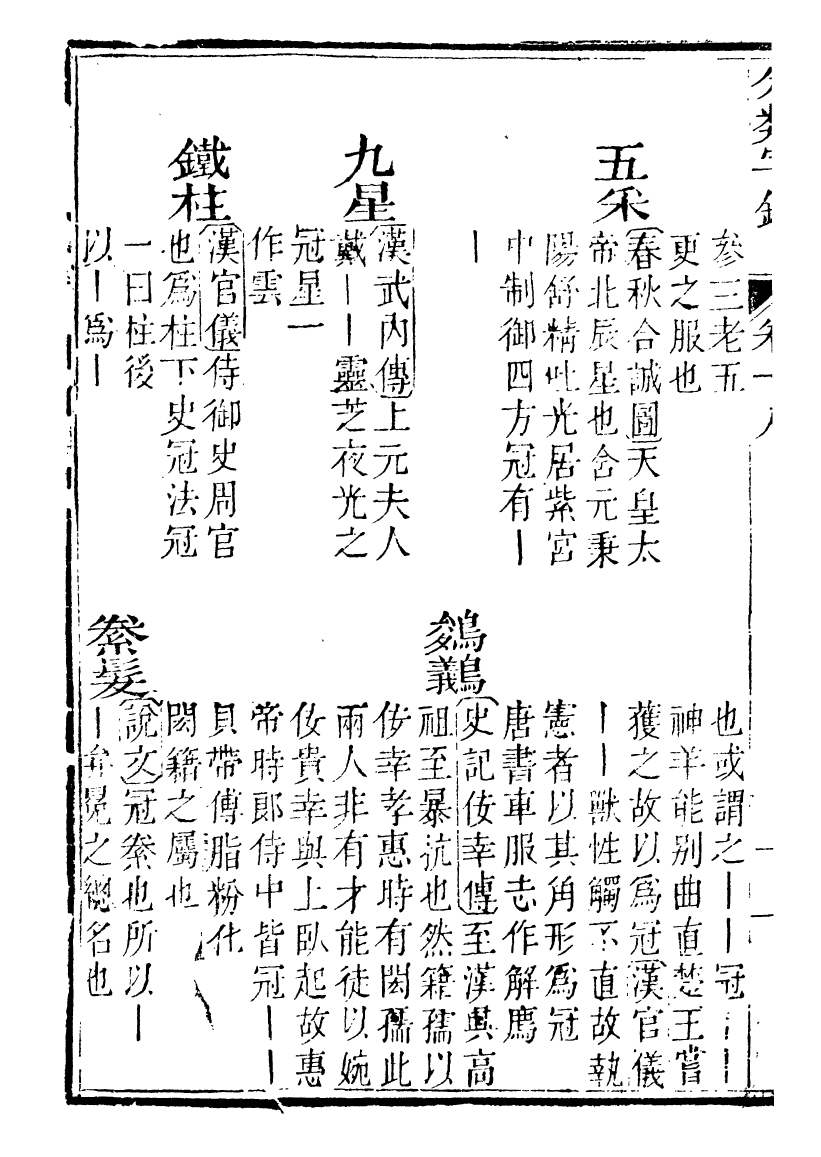 分類字錦　卷十八
參三老五
更之服也
五采
春秋合誠圖天皇太
帝北辰星也含元秉
陽舒精吐光居紫宮
中制御四方冠有丨
丨
九星
漢武內傳上元夫人
戴丨丨靈芝夜光之
冠星一
作雲
鐵柱
漢官儀侍御史周官
也爲柱下史冠法冠
一曰柱後
以丨爲丨
也或謂之丨丨冠丨丨
神羊能别曲直楚王嘗
獲之故以爲冠漢官儀
丨丨獸性觸不直故執
憲者以其角形爲冠
唐書車服志作解廌
鵔鸃
史記佞幸傳至漢興高
祖至暴抗也然籍孺以
佞幸孝惠時有閎孺此
兩人非有才能徒以婉
佞貴幸與上臥起故惠
帝時郎侍中皆冠丨丨
貝帶傅脂粉化
閎籍之屬也
絭髮
說文冠絭也所以丨
丨弁冕之緫名也